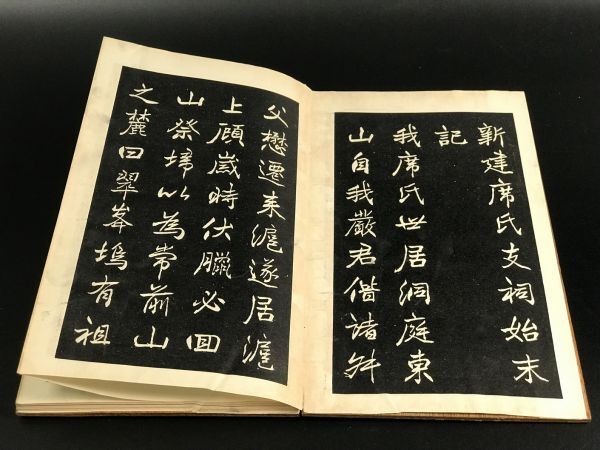 新建席氏支祠始末
記
我席氏世居洞庭東
山自我嚴君偕諸叔
父懋遷来滬遂居滬
上顧歲時伏臘必囬
山祭埽以為常前山
之麓曰翠峯塢有祖